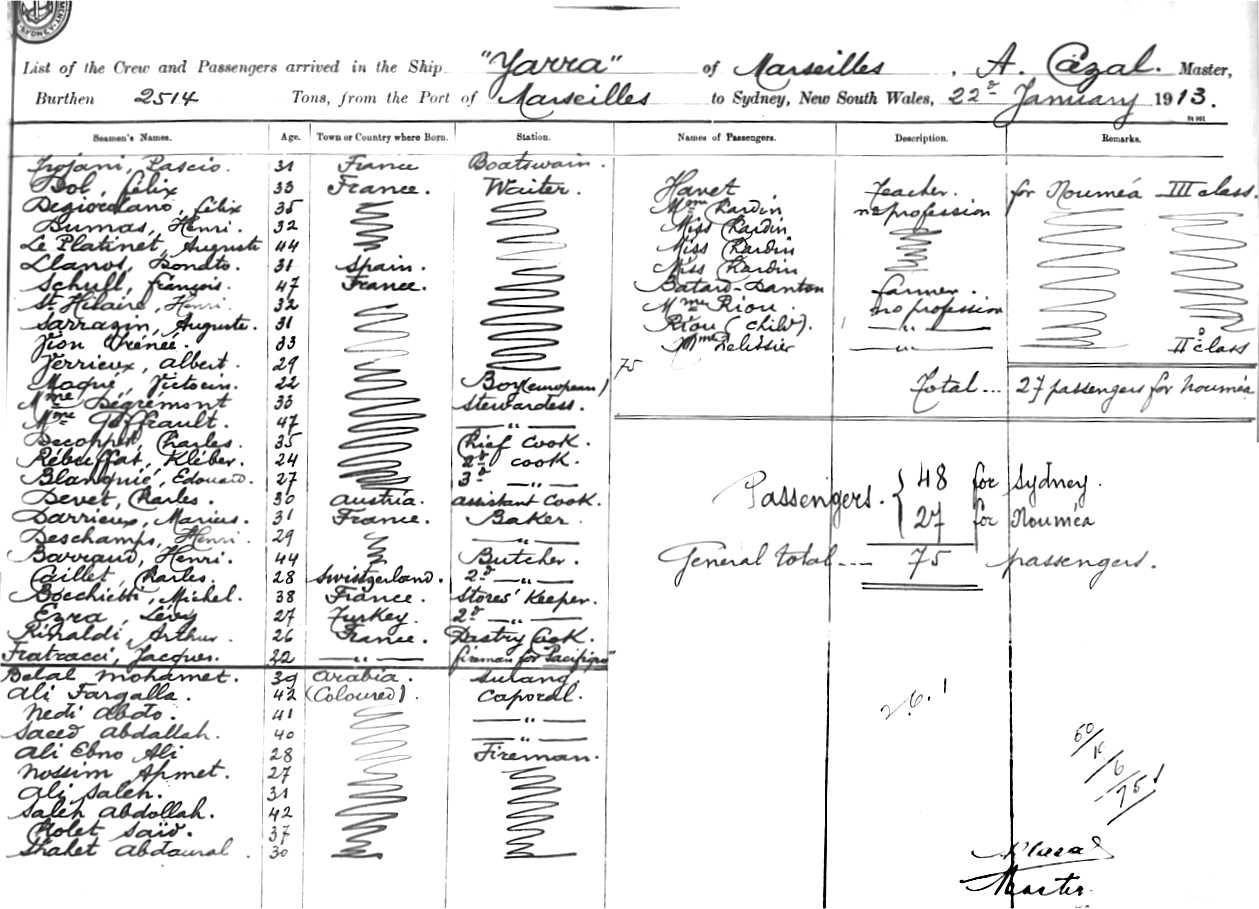 SYDNEY
List of the Crew and Passengers arrived in the Ship "Yarra" of Marseilles, A. Cazal. Master,
Burthen 2514 Tons, from the Port of Marseilles to Sydney, New South Wales, 22d January 1913.
Seamen's Names. Age. Town or Country where Born. Station. Names of Passengers. Description. Remarks.
Trojani, Pascio. 31 France Boatswain.
Bol, félix 33 France. Waiter. Havet Teacher. for Nouméa III class.
Degiordano, félix 35 Mme Chardin no profession
Dumas, Henri. 32 Miss Chardin
Le Platinet, Auguste 44 Miss Chardin
Llanos, Donato. 31 Spain. Miss Chardin
Schull, françois. 47 France. Batard-Danton farmer.
St Hilaire, Henri. 32 Mme Riou no profession
Sarrazin, Auguste. 31 Riou (child). — " —
Jion Irénée. 33 Mme Pelissier — " — IId class
Verrieux, albert. 29 75
Maqué, Victorin. 22 Boy (european) Total... 27 passengers for Nouméa
Mme Dégrémont 33 Stewardess.
Mme Goffrault. 47 — " —
Decopper, Charles. 35 Chief Cook.
Rébuffat, Kléber. 24 2d cook.
Blanquié, Edouard. 27 3d — " — Passengers. { 48 for Sydney.
Devet, Charles. 30 Austria. assistant Cook.
Darrieux, Marius. 31 France. Baker. 27 for Nouméa
Deschamps, Henri. 29 — " —
Barraud, Henri. 44 Butcher. General total --- 75 passengers.
Caillet, Charles. 28 Swistzerland. 2d — " —
Bocchietti, Michel. 38 France. Stores' Keeper.
Ezra, Lévy 27 Turkey. 2d — " —
Rinaldi, Arthur. 26 France. Pastry Cook.
Fratracci, Jacques. 22 — " — fireman for "Pacifique"
Belal Mohamet. 39 Arabia. Surang
Ali Fargalla. 42 (Coloured). Caporal.
Nedi Abdo. 41 — " —
Saeed Abdallah. 40 — " —
Ali Ebno Ali 28 Fireman.
Nossim Ahmet. 27
Ali Saleh. 31
Saleh Abdollah. 42
Cholet Saïd. 37
Shahet Abdoural. 30
2.6.1
75
Master.